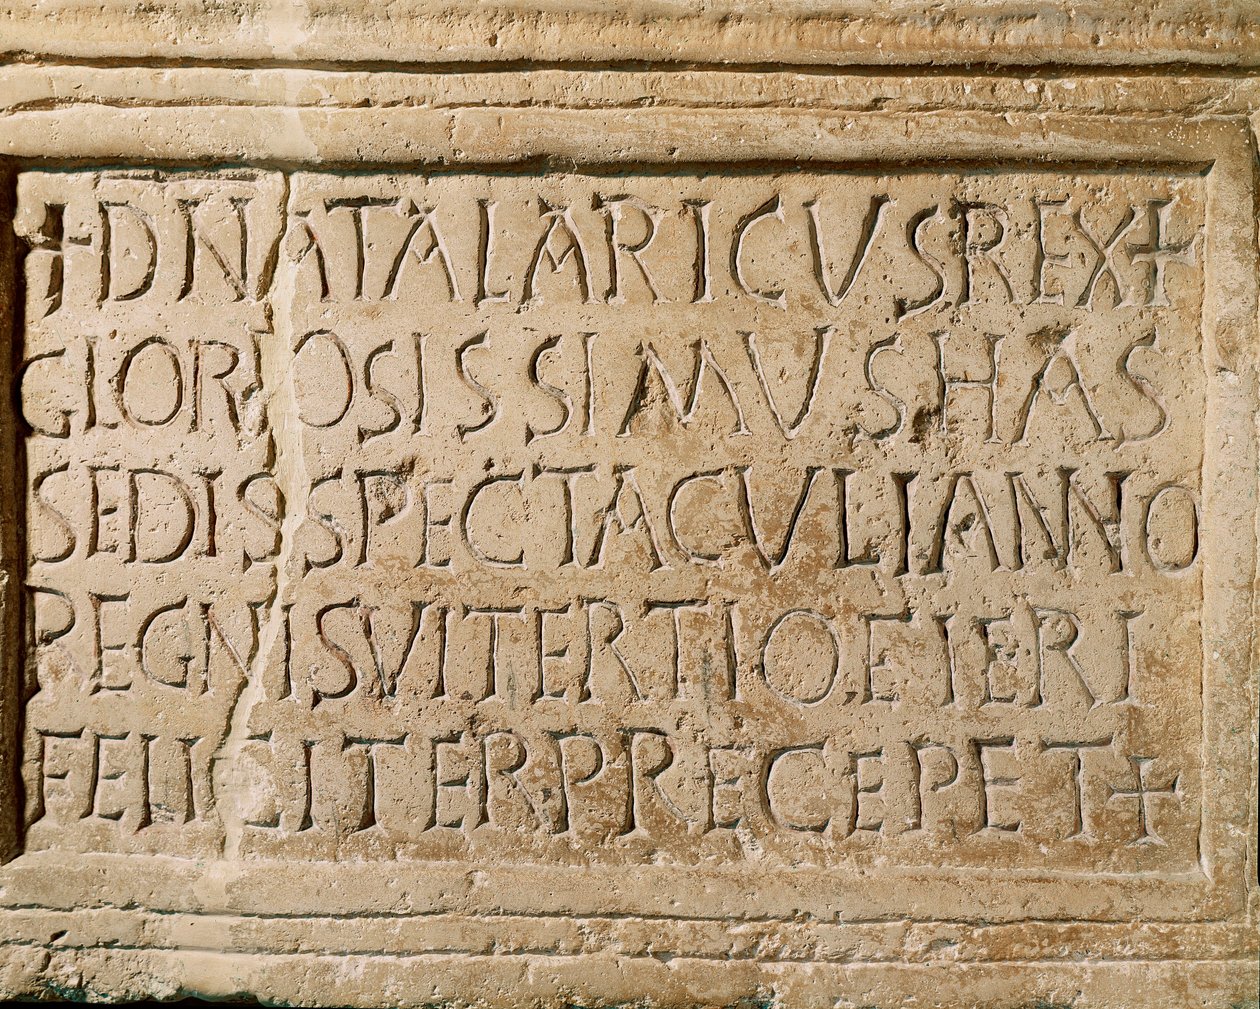 + D N ATALARICUS REX +
GLORIOSISSIMUS HAS
SEDIS SPECTACULI ANNO
REGNI SVI TERTIO FIERI
FELICITER PRECEPET +